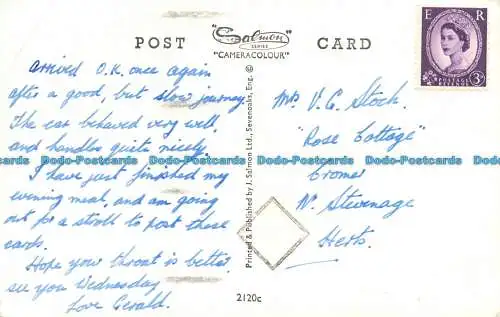 POST Salmon SERIES "CAMERACOLOUR" © CARD
E R
POSTAGE REVENUE
3D
arrived O.K. once again
after a good, but slow journey.
The car behaved very well,
and handles quite nicely.
I have just finished my
evening meal, and am going
out for a stroll to post these
cards.
Hope you throat is better
see you Wednesday
Love Gerald.
Printed & Published by J. Salmon Ltd., Sevenoaks, Eng.
Mrs V. C. Stoch,
"Rose Cottage"
Cromer
Nr. Stevenage
Herts.
2120c
Dodo-Postcards Dodo-Postcards Dodo-Postcards Dodo-Postcards Dodo-Postcards